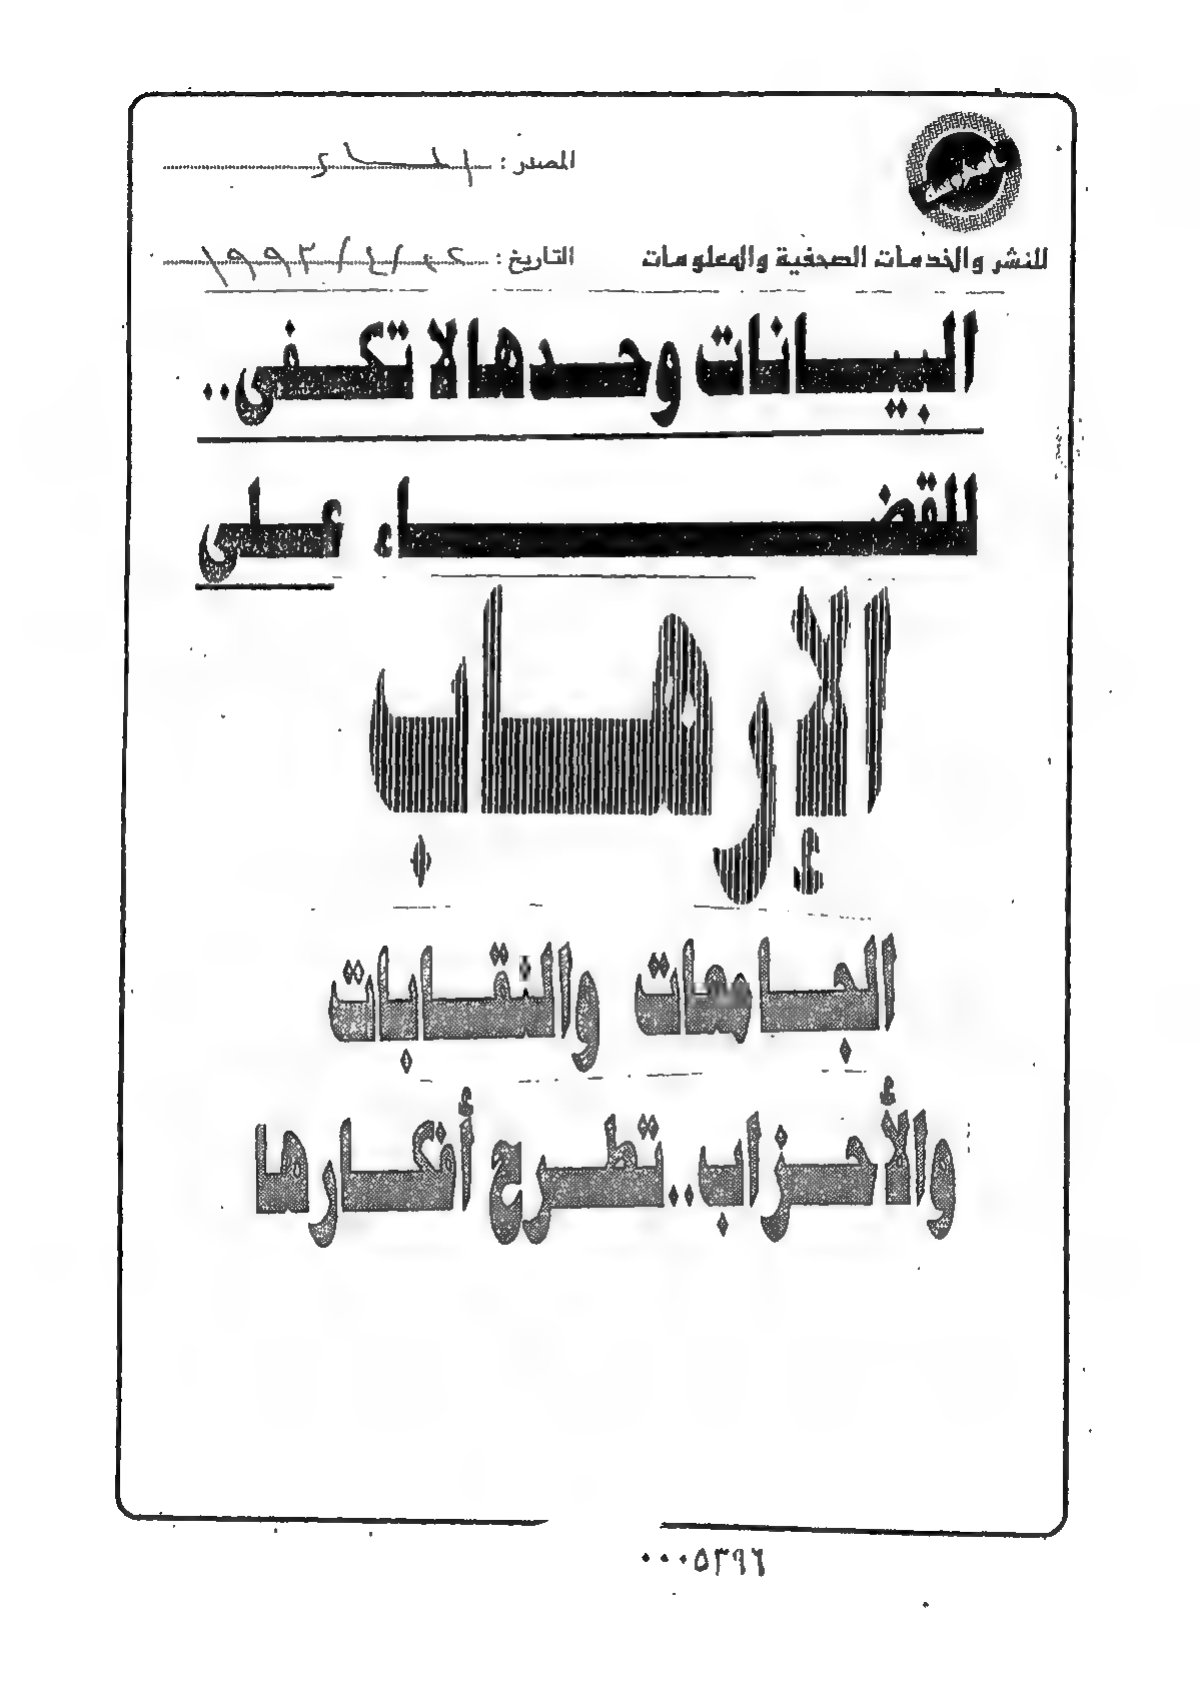 المصدر :
للنشر والخدمات الصحفية والمعلومات
التاريخ : ١٩٩٣/٤/
البيانات وحدها لا تكفى..
للقضاء على
الإرهاب
الجامعات والنقابات
والأحزاب.. تطرح أفكارها
٠٠٠٥٣٩٦